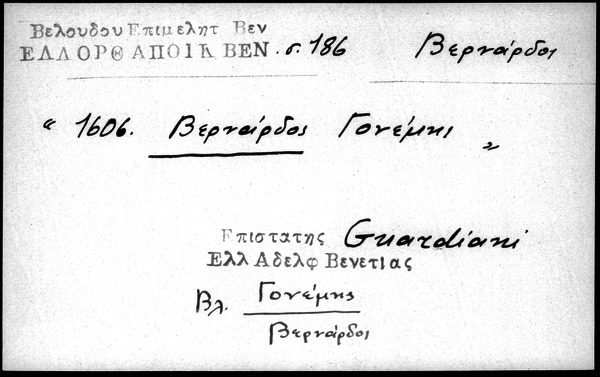 Βελουδου Επιμελητ Βεν
ΕΛΛΟΡΘ ΑΠΟΙΚ ΒΕΝ. σ. 186 Βερνάρδος
“ 1606. Βερνάρδος Γονέμης „
Επιστατης Guardiani
Ελλ Αδελφ Βενετιας
Βλ. Γονέμης
Βερνάρδος